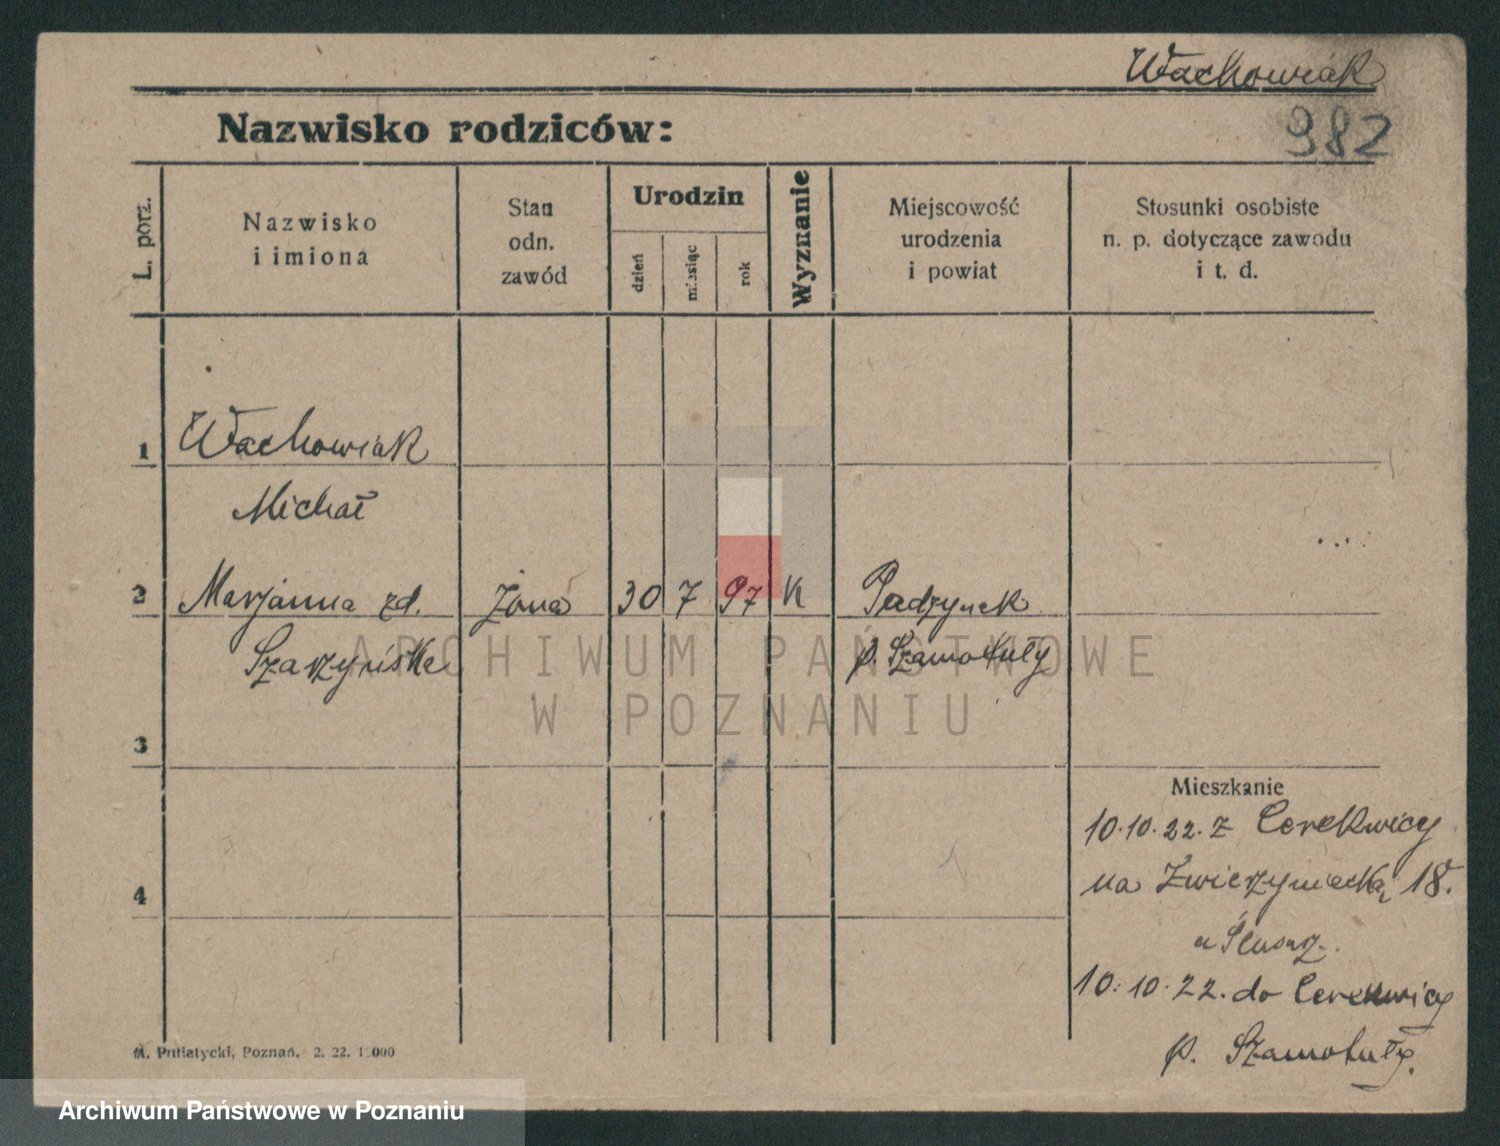 Wachowiak
982
Nazwisko rodziców:
L. porz.
Nazwisko
i imiona
Stan
odn.
zawód
Urodzin
dzień
miesiąc
rok
Wyznanie
Miejscowość
urodzenia
i powiat
Stosunki osobiste
n. p. dotyczące zawodu
i t. d.
1 Wachowiak
Michał
2 Marjanna zd. żona 30 7 97 K Padzynek
Szarzyńska p. Szamotuły
ARCHIWUM PAŃSTWOWE
W POZNANIU
3
Mieszkanie
10.10.22. z Cerekwicy
na Zwierzyniecką 18.
4
u
10.10.22. do Cerekwicy
p. Szamotuły.
M. Putiatycki, Poznań. 2. 22.
Archiwum Państwowe w Poznaniu